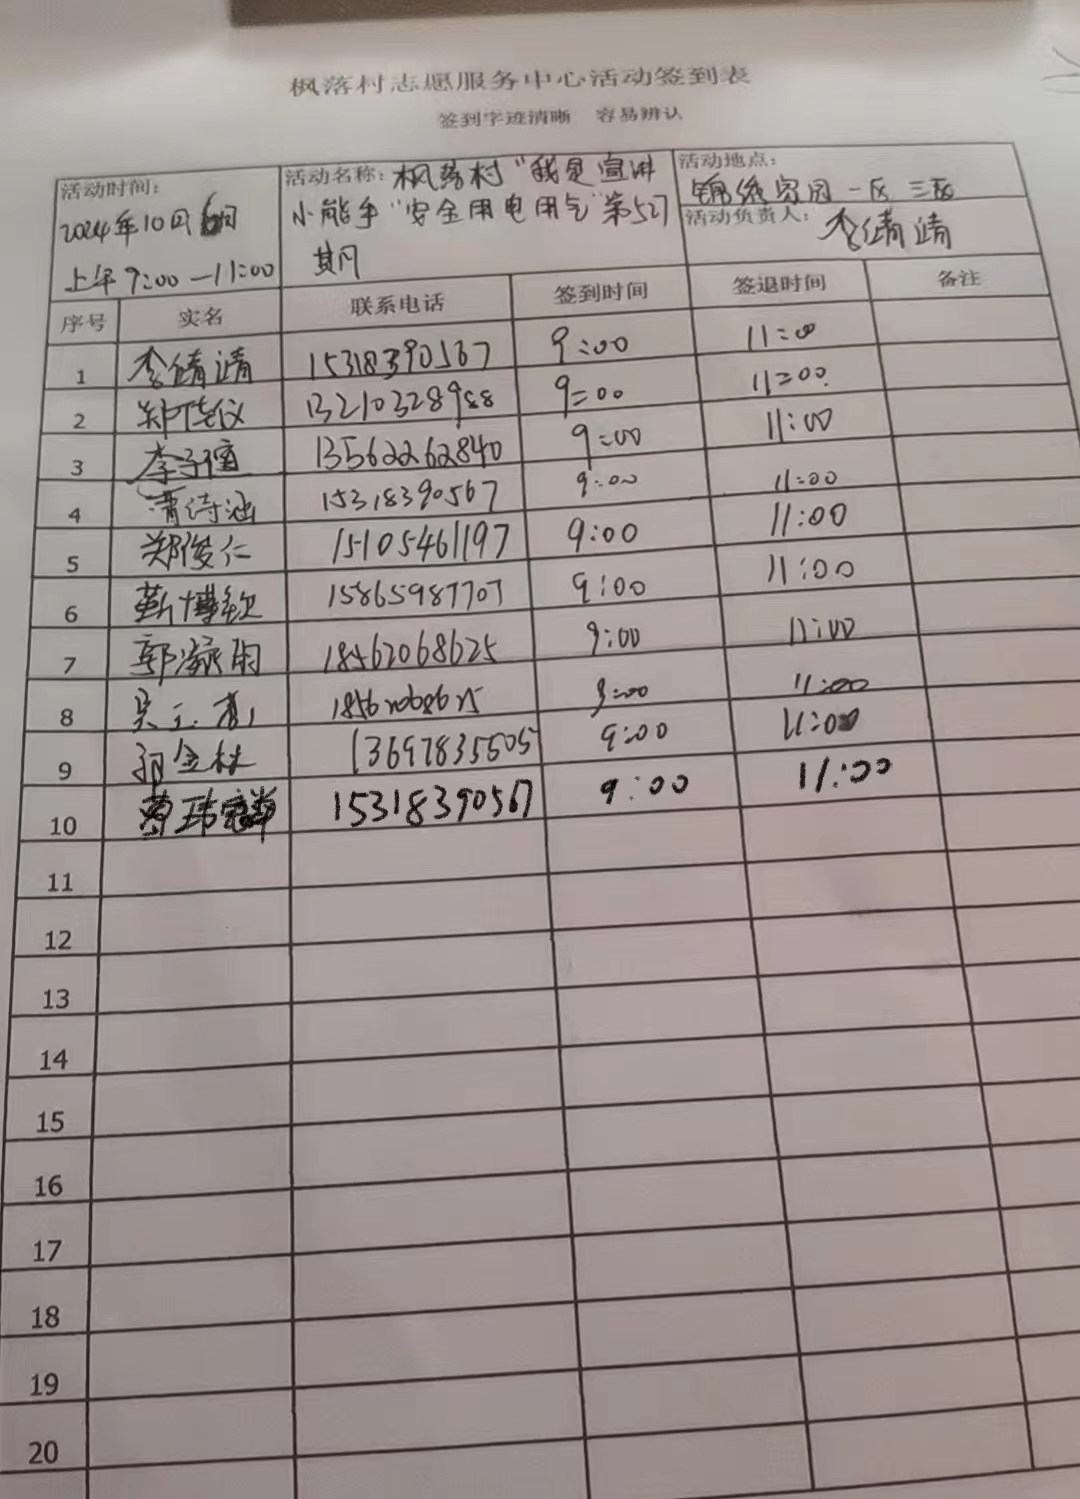 枫落村志愿服务中心活动签到表
签到字迹清晰 容易辨认
活动时间:
2024年10月6日
上午9:00—11:00
活动名称: 枫落村"我是宣讲
小能手"安全用电用气"第527
期
活动地点:
锦绣家园一区三区
活动负责人: 李倩靖
序号 实名 联系电话 签到时间 签退时间 备注
1 李倩靖 15318390567 9:00 11:00
2 郑佳仪 13210328988 9:00 11:00
3 李子 13562262840 9:00 11:00
4 诗涵 15318390567 9:00 11:00
5 郑俊仁 15105461197 9:00 11:00
6 靳博钦 15865987707 9:00 11:00
7 郭凝雨 18562068625 9:00 11:00
8 18562068625 9:00 11:00
9 金林 13697835505 9:00 11:00
10 玮 15318390567 9:00 11:00
11
12
13
14
15
16
17
18
19
20